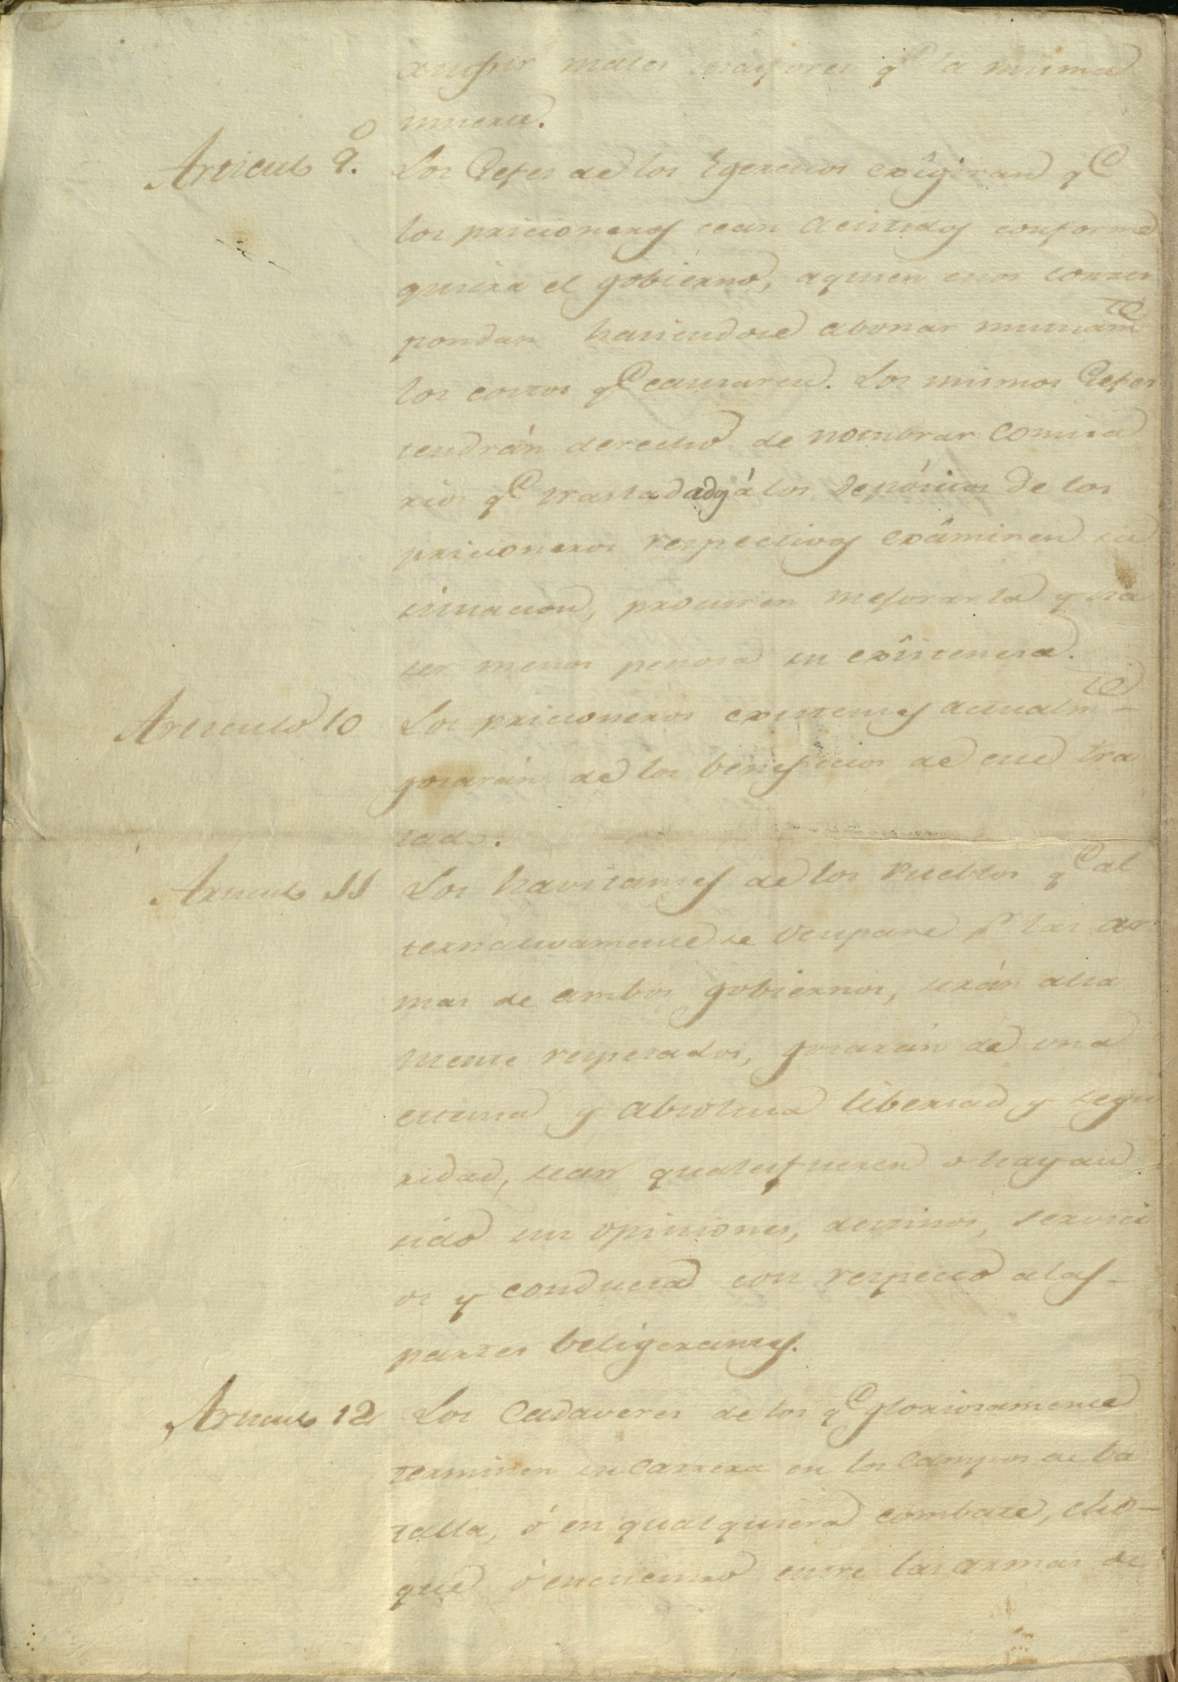 a sufrir males mayores qe. la misma
muerte.
Articulo 9º. Los Gefes de los Egercitos exîgiran qe
los pricioneros sean acistidos conforme
quiera el gobierno, a quien estos corres
pondan haciendose abonar mutuamte
los costos qe causaren. Los mismos Gefes
tendrán derecho de nombrar comisa
rios qe trasladados á los depósitos de los
pricioneros respectivos exâminen su
situacion, procuren mejorarla y ha
ser menos penosa su exîstencia.
Articulo 10 Los pricioneros existentes actualmte
gozarán de los beneficios de este tra
tado.
Articulo 11 Los havitantes de los Pueblos qe al
ternativamente se ocuparen pr las ar
mas de ambos gobiernos, serán alta
mente respetados, gozarán de una
estensa y absoluta libertad y segu
ridad, sean quales fueren o hayan
sido sus opiniones, destinos, servici
os y conducta con respecto a las
partes beligerantes.
Articulo 12 Los Cadaveres de los qe gloriosamente
terminen su carrera en los campos de ba
talla, ó en qualquiera combate, cho-
que ó encuentro entre las armas de